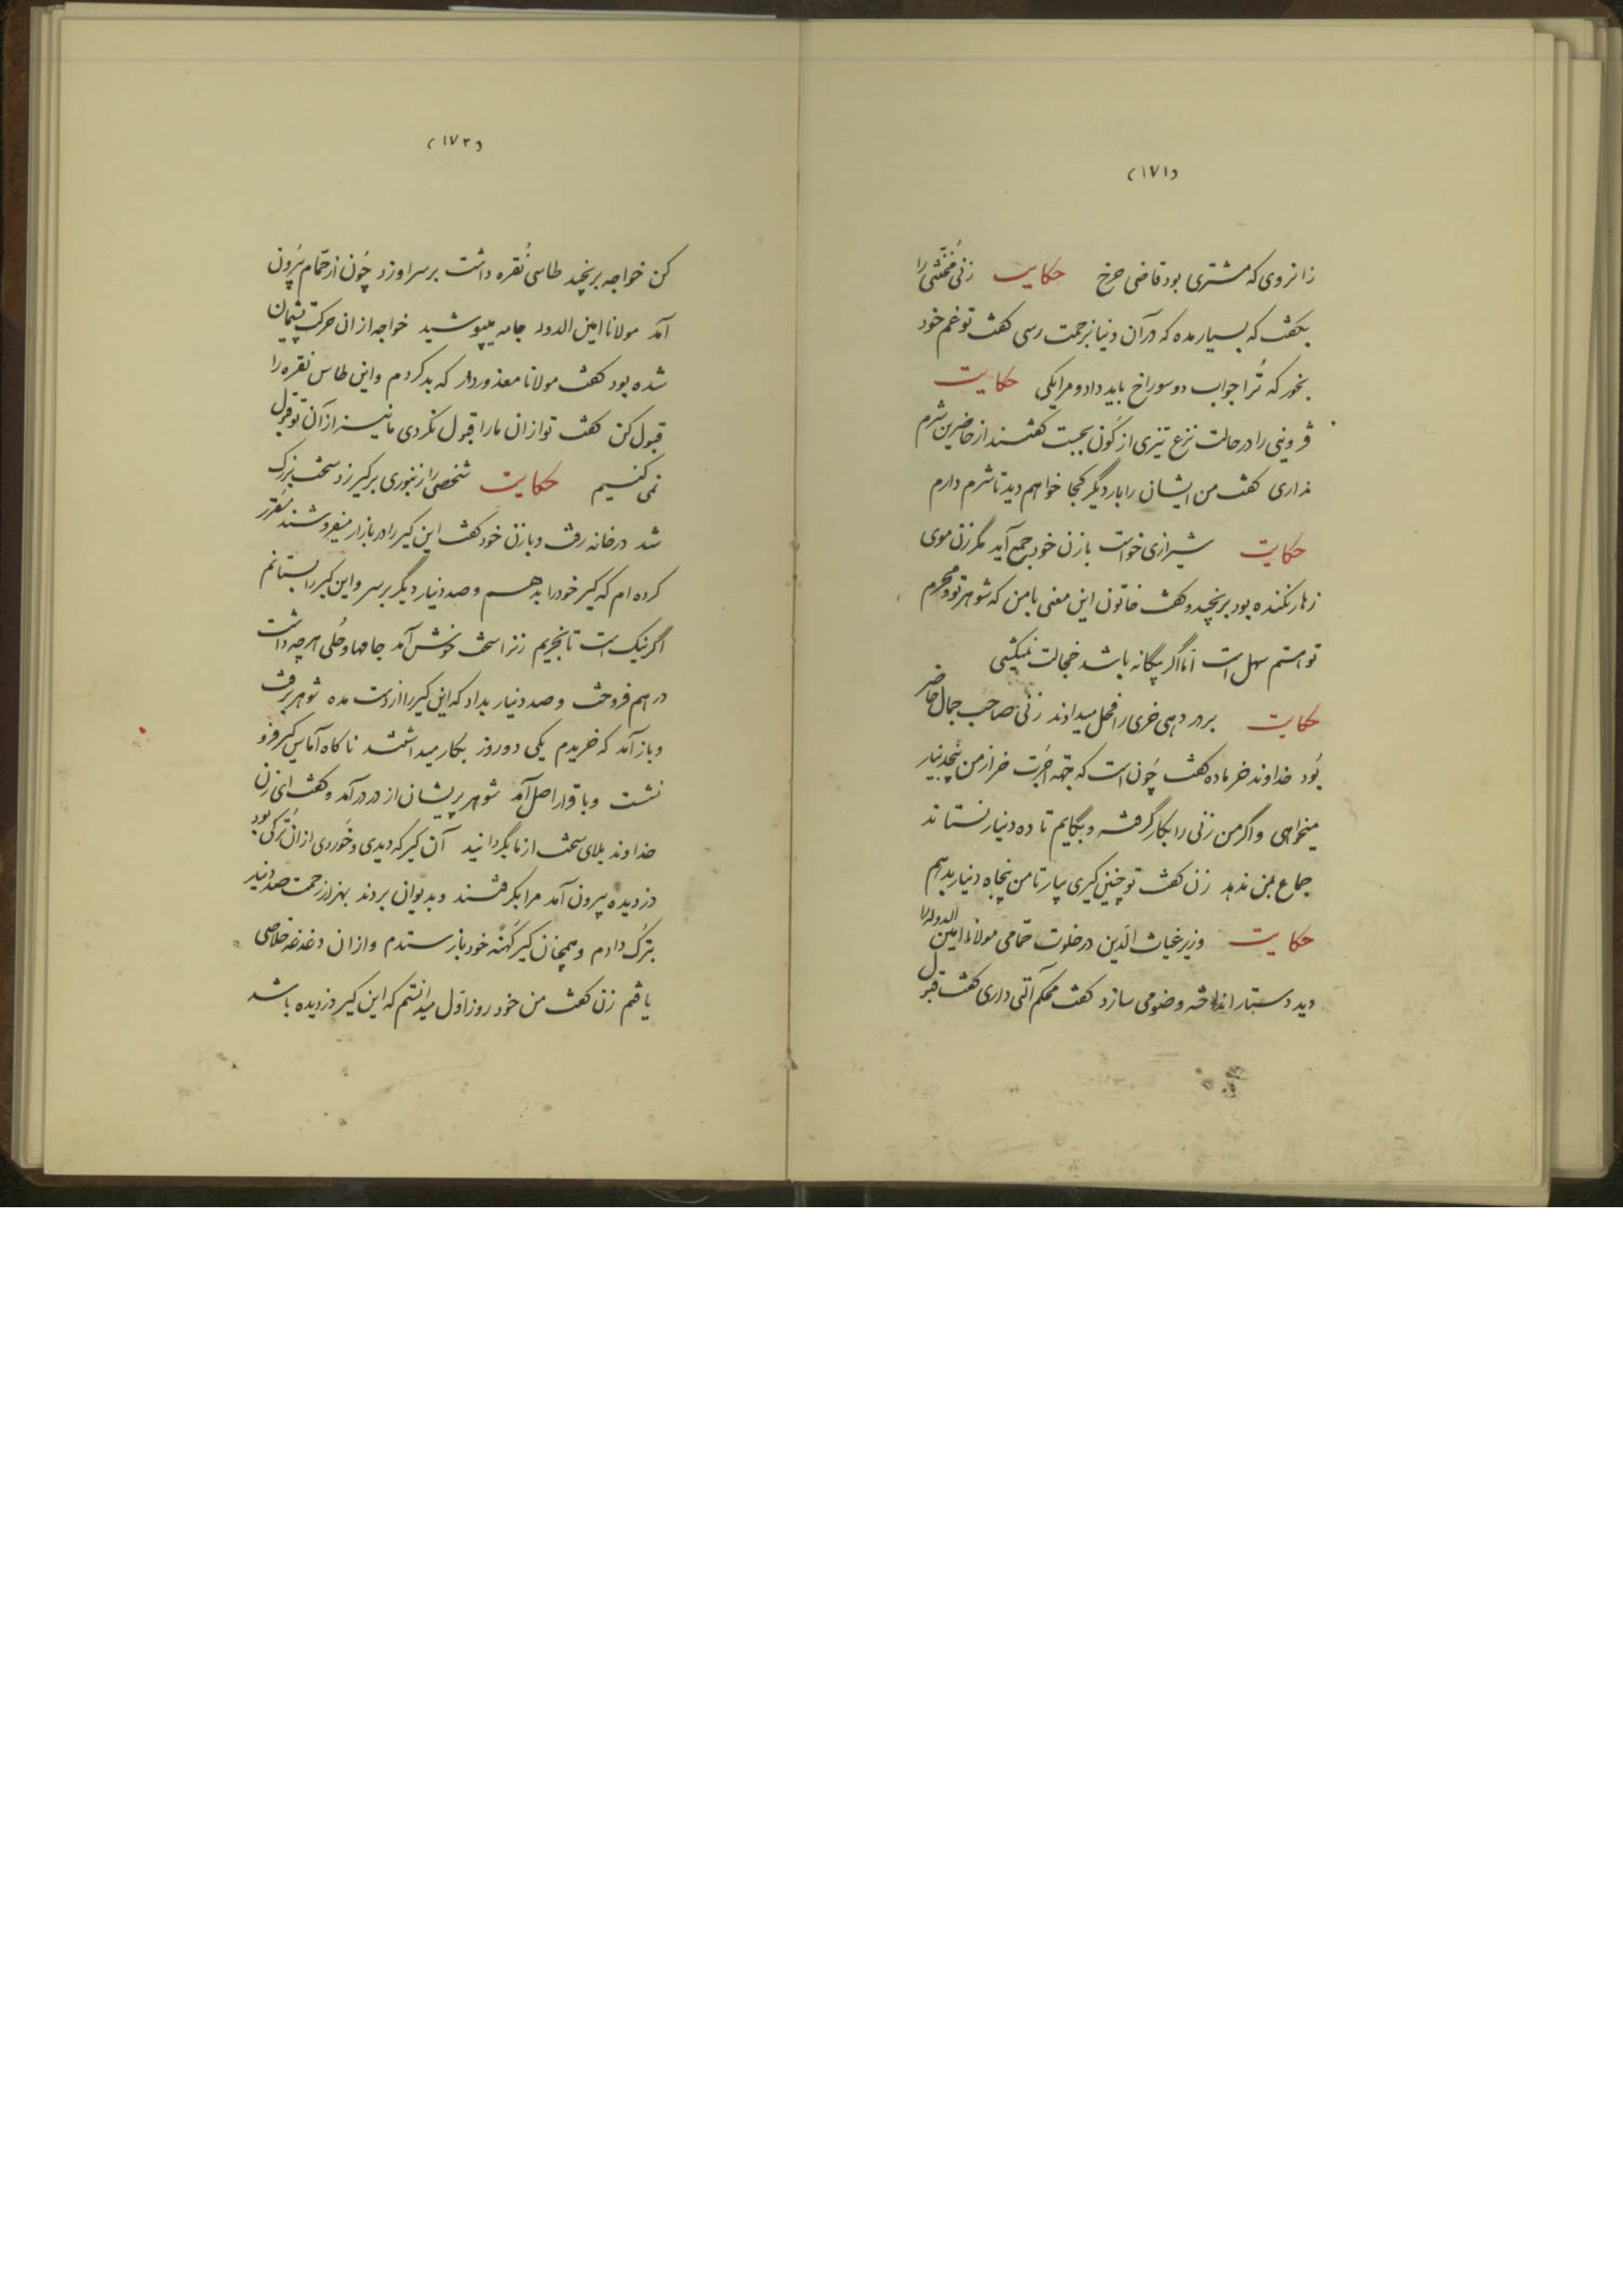 (۱۷۱)
زانروی که مشتری بود قاضی چرخ حکایت زنی مخنّثی را
بگفت که بسیار مده که در آن دنیا بزحمت رسی گفت تو غم خود
بخور که تُرا جواب دو سوراخ باید داد و مرا یکی حکایت
قزوینی را در حالت نزع تیزی از کون بجست گفتند از حاضرین شرم
نداری گفت من ایشان را بار دیگر کجا خواهم دید تا شرم دارم
حکایت شیرازی خواست با زن خود جمع آید مگر زن موی
زهار نکنده بود برنجید و گفت خاتون این معنی با من که شوهر تو و محرم
تو استم سهل است امّا اگر بیگانه باشد خجالت نمیکشی
حکایت بر در دهی خری را فحل میدادند زنی صاحب جمال حاضر
بُود خداوند خر ماده گفت چُون است که جهة اُجرت خر از من پنجدینار
میخواهی و اگر من زنی را بکار گرفته و بگایم تا ده دینار نستاند
جماع بمن ندهد زن گفت تو چنین کیری بیار تا من پنجاه دینار بدهم
حکایت وزیر غیاث الدّین در خلوت حمّامی مولانا امین الدوله را
دید دستار انداخته وضو می سازد گفت محکم آلتی داری گفت قبول
(۱۷۲)
کن خواجه برنجید طاسی نُقره داشت بر سر او زد چُون از حمّام بیرون
آمد مولانا امین الدوله جامه میپوشید خواجه از ان حرکت پشیمان
شده بود گفت مولانا معذور دار که بد کردم و این طاس نقره را
قبول کن گفت تو از ان ما را قبول نکردی ما نیز از آن تو قبول
نمی کنیم حکایت شخصی را زنبوری بر کیر زد سخت بزرگ
شد در خانه رفت و با زن خود گفت این کیر را در بازار میفروشند مُقرّر
کرده ام که کیر خود را بدهم و صد دینار دیگر بر سر و این کیر را بستانم
اگر نیک است تا بخریم زنرا سخت خوش آمد جامها و حُلی هر چه داشت
در هم فروخت و صد دینار بداد که این کیر را از دست مده شوهر برفت
و باز آمد که خریدم یکی دو روز بکار میداشتند ناکاه آماس کیر فرو
نشست و با قرار اصل آمد شوهر پریشان از در درآمد و گفت ای زن
خداوند بلای سخت از ما بگردانید آن کیر که دیدی و خُوردی از ان تُرکی بود
دزدیده بیرون آمد مرا بگرفتند و بدیوان بردند بهزار زحمت صد دینار
بترک دادم و همچنان کیر کُهنه خود باز ستدم و از ان دغدغه خلاصی
یافتم زن گفت من خود روز اوّل میدانستم که این کیر دزدیده باشد